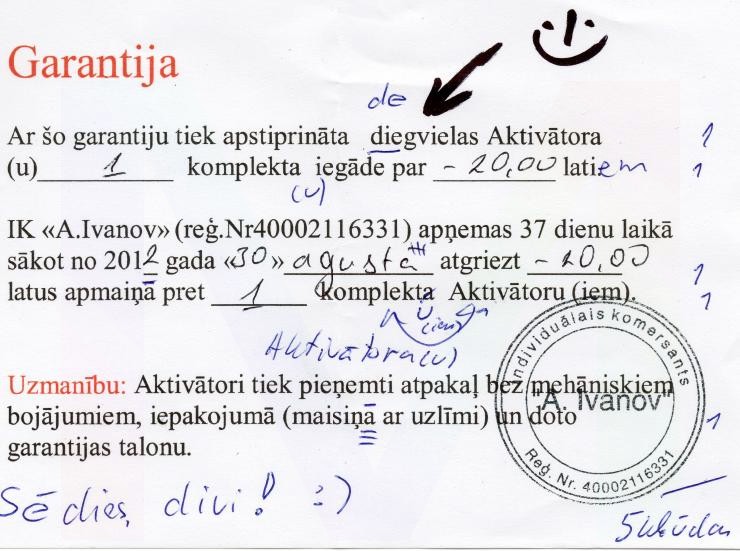 Garantija
de
Ar šo garantiju tiek apstiprināta diegvielas Aktivātora 1
(u) 1 komplekta iegāde par - 20,00 latiem 1
(u)
IK «A.Ivanov» (reģ.Nr40002116331) apņemas 37 dienu laikā
sākot no 2012 gada «30» agusta atgriezt - 20,00 1
latus apmaiņā pret 1 komplekta Aktivātoru (iem). 1
u
(iem)
Aktivātora(u)
Uzmanību: Aktivātori tiek pieņemti atpakaļ bez mehāniskiem
bojājumiem, iepakojumā (maisiņā ar uzlīmi) un doto 1
garantijas talonu.
Individuālais komersants
"A. Ivanov"
Reģ. Nr. 40002116331
Sēdies, divi! :)
5 kļūdas